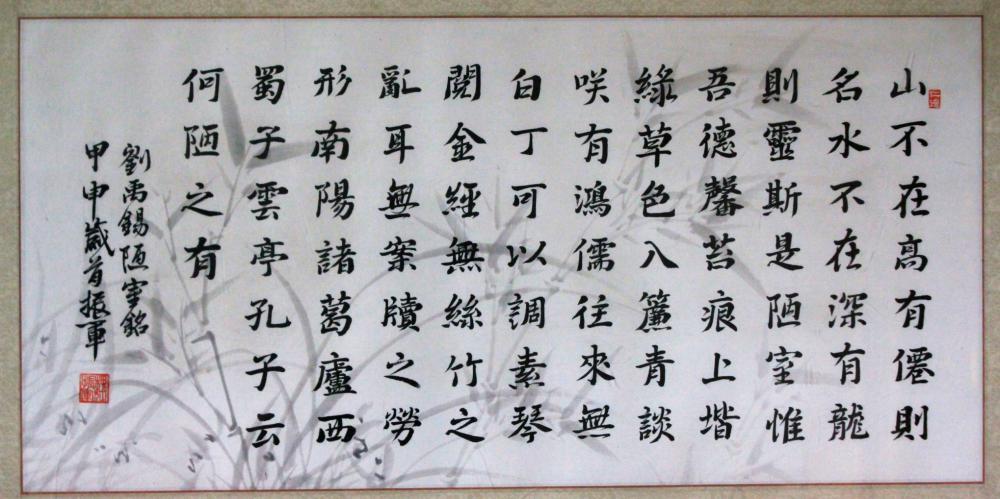 山不在高有僊則
名水不在深有龍
則靈斯是陋室惟
吾德馨苔痕上堦
綠草色入簾青談
咲有鴻儒往來無
白丁可以調素琴
閱金經無絲竹之
亂耳無案牘之勞
形南陽諸葛廬西
蜀子雲亭孔子云
何陋之有
劉禹錫陋室銘
甲申歲首振軍